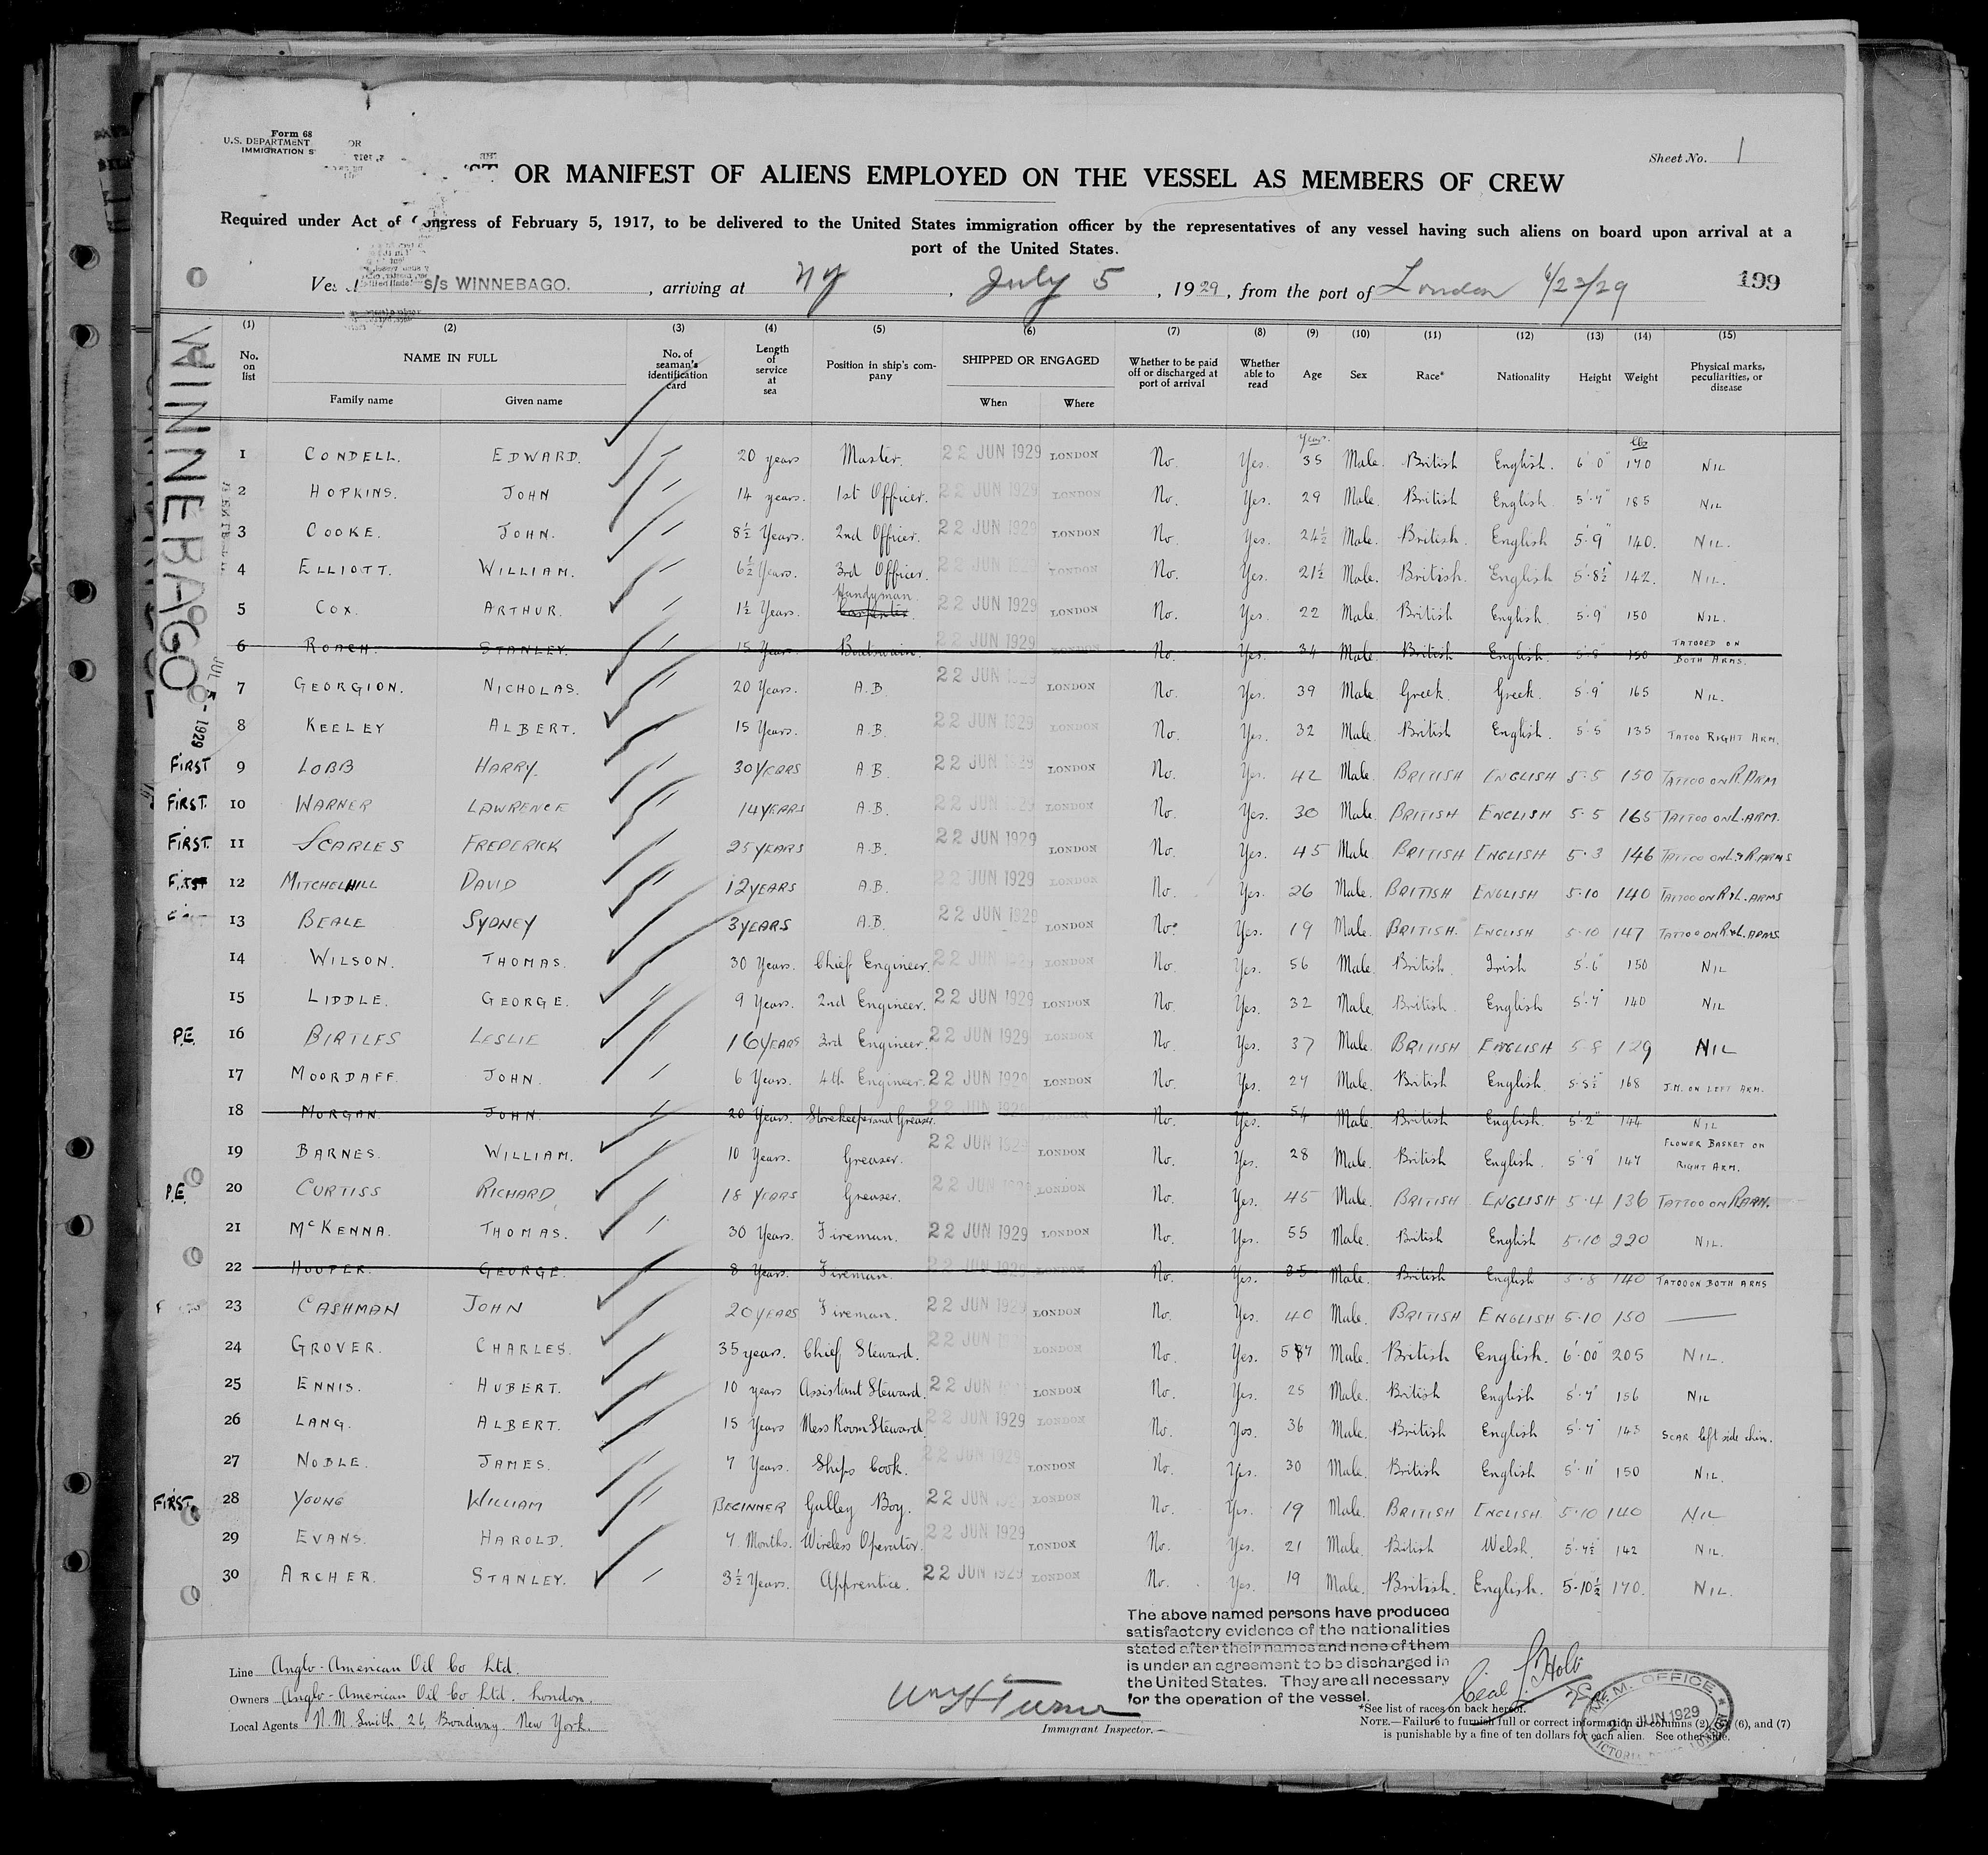 Form 68
U.S. DEPARTMENT OR
IMMIGRATION S
Sheet No. 1
OR MANIFEST OF ALIENS EMPLOYED ON THE VESSEL AS MEMBERS OF CREW
Required under Act of Congress of February 5, 1917, to be delivered to the United States immigration officer by the representatives of any vessel having such aliens on board upon arrival at a
port of the United States.
s/s WINNEBAGO. , arriving at NY , July 5 , 1929, from the port of London 6/22/29
199
WINNEBAGO
JUL 5 - 1929
(1) (2) (3) (4) (5) (6) (7) (8) (9) (10) (11) (12) (13) (14) (15)
No. on list NAME IN FULL No. of seaman's identification card Length of service at sea Position in ship's company SHIPPED OR ENGAGED Whether to be paid off or discharged at port of arrival Whether able to read Age Sex Race* Nationality Height Weight Physical marks, peculiarities, or disease
Family name Given name When Where
years. lbs
1 CONDELL. EDWARD. 20 years Master. 22 JUN 1929 LONDON No. Yes. 35 Male. British English. 6'0" 170 NIL
2 HOPKINS. JOHN 14 years. 1st Officer. 22 JUN 1929 LONDON No. Yes. 29 Male. British English 5'7" 185 NIL
3 COOKE. JOHN. 8½ Years. 2nd Officer. 22 JUN 1929 LONDON No. Yes. 24½ Male. British. English 5'9" 140. NIL.
4 ELLIOTT. WILLIAM. 6½ Years. 3rd Officer. 22 JUN 1929 LONDON No. Yes. 21½ Male. British. English 5'8½" 142. NIL.
5 COX. ARTHUR. 1½ Years. Handyman. Carpenter. 22 JUN 1929 LONDON No. Yes. 22 Male. British English. 5'9" 150 NIL.
6 ROACH. STANLEY. 15 Years. Boatswain. 22 JUN 1929 No. Yes. 34 Male British English. 5'8" 150 TATOOED ON BOTH ARMS.
7 GEORGION. NICHOLAS. 20 Years. A.B. 22 JUN 1929 LONDON No. Yes. 39 Male. Greek. Greek. 5'9" 165 NIL.
8 KEELEY ALBERT. 15 Years. A.B. 22 JUN 1929 LONDON No. Yes. 32 Male. British English. 5'5" 135 TATOO RIGHT ARM.
FIRST 9 LOBB HARRY. 30 YEARS A.B. 22 JUN 1929 LONDON No. Yes. 42 Male. BRITISH ENGLISH 5.5 150 TATTOO ON R. ARM
FIRST. 10 WARNER LAWRENCE 14 YEARS A.B. 22 JUN 1929 LONDON No. Yes. 30 Male. BRITISH ENGLISH 5.5 165 TATTOO ON L. ARM.
FIRST. 11 SCARLES FREDERICK 25 YEARS A.B. 22 JUN 1929 LONDON No. Yes. 45 Male BRITISH ENGLISH 5.3 146 TATTOO ON L. & R. ARMS
FIRST 12 MITCHELHILL DAVID 12 YEARS A.B. 22 JUN 1929 LONDON No. Yes. 26 Male. BRITISH ENGLISH 5.10 140 TATTOO ON R & L. ARMS
13 BEALE SYDNEY 3 YEARS A.B. 22 JUN 1929 LONDON No. Yes. 19 Male. BRITISH. ENGLISH 5.10 147 TATTOO ON R & L. ARMS
14 WILSON. THOMAS. 30 Years. Chief Engineer. 22 JUN 1929 LONDON No. Yes. 56 Male. British. Irish 5'6" 150 NIL
15 LIDDLE. GEORGE. 9 Years. 2nd Engineer. 22 JUN 1929 LONDON No. Yes. 32 Male. British. English 5'7" 140 NIL
P.E. 16 BIRTLES LESLIE 16 YEARS 3rd Engineer. 22 JUN 1929 LONDON No. Yes. 37 Male. BRITISH ENGLISH 5.8 129 NIL
17 MOORDAFF. JOHN. 6 Years. 4th Engineer. 22 JUN 1929 LONDON No. Yes. 27 Male. British English. 5'5½" 168 J.M. ON LEFT ARM.
18 MORGAN. JOHN. 20 Years. Storekeeper and Greaser. 22 JUN 1929 No. Yes. 54 Male. British English. 5'2" 144 NIL
19 BARNES. WILLIAM. 10 Years. Greaser. 22 JUN 1929 LONDON No. Yes. 28 Male. British English. 5'9" 147 FLOWER BASKET ON RIGHT ARM.
P.E. 20 CURTISS RICHARD 18 YEARS Greaser. 22 JUN 1929 LONDON No. Yes. 45 Male. BRITISH ENGLISH 5.4 136 TATTOO ON R. ARM.
21 McKENNA. THOMAS. 30 Years. Fireman. 22 JUN 1929 LONDON No. Yes. 55 Male. British English 5.10 220 NIL.
22 HOOPER. GEORGE. 8 Years. Fireman. 22 JUN 1929 No. Yes. 35 Male. British English 5.8 140 TATOO ON BOTH ARMS
23 CASHMAN JOHN 20 YEARS Fireman. 22 JUN 1929 LONDON No. Yes. 40 Male. BRITISH ENGLISH 5.10 150 —
24 GROVER. CHARLES. 35 years. Chief Steward. 22 JUN LONDON No. Yes. 57 Male. British English. 6'00" 205 NIL.
25 ENNIS. HUBERT. 10 years Assistant Steward. 22 JUN LONDON No. Yes. 25 Male. British English 5'7" 156 NIL
26 LANG. ALBERT. 15 Years Mess Room Steward. 22 JUN 1929 LONDON No. Yes. 36 Male. British English 5'7" 143 SCAR left side chin.
27 NOBLE. JAMES. 7 Years. Ships Cook. 22 JUN 1929 LONDON No. Yes. 30 Male. British English 5'11" 150 NIL.
FIRST. 28 YOUNG WILLIAM BEGINNER Galley Boy. 22 JUN LONDON No. Yes. 19 Male. BRITISH ENGLISH. 5.10 140 NIL
29 EVANS. HAROLD. 7 Months. Wireless Operator. 22 JUN 1929 LONDON No. Yes. 21 Male. British Welsh. 5'7½" 142 NIL.
30 ARCHER. STANLEY. 3½ Years. Apprentice. 22 JUN 1929 LONDON No. Yes. 19 Male. British. English. 5-10½ 170. NIL.
The above named persons have produced
satisfactory evidence of the nationalities
stated after their names and none of them
is under an agreement to be discharged in
the United States. They are all necessary
for the operation of the vessel.
Line Anglo-American Oil Co Ltd.
Owners Anglo-American Oil Co Ltd. London.
Local Agents N.M. Smith. 26, Broadway. New York.
Wm H Turner
Immigrant Inspector.
*See list of races on back hereof.
NOTE.—Failure to furnish full or correct information in columns (2), (5), (6), and (7)
is punishable by a fine of ten dollars for each alien. See other side.
M.M. OFFICE
JUN 1929